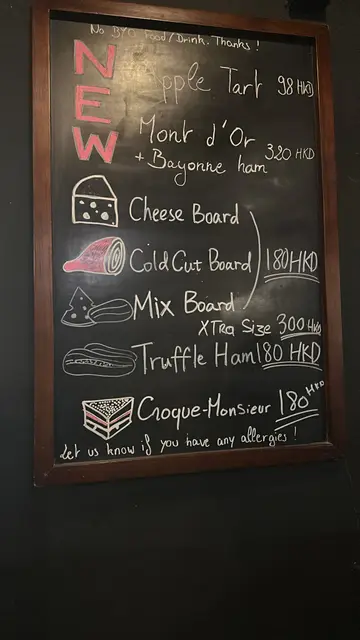 No BYO Food/Drink. Thanks!
NEW
Apple Tart 98 HKD
Mont d'Or
+ Bayonne ham 320 HKD
Cheese Board
Cold Cut Board 180 HKD
Mix Board
XTRA Size 300 HKD
Truffle Ham 180 HKD
Croque-Monsieur 180 HKD
Let us know if you have any allergies!